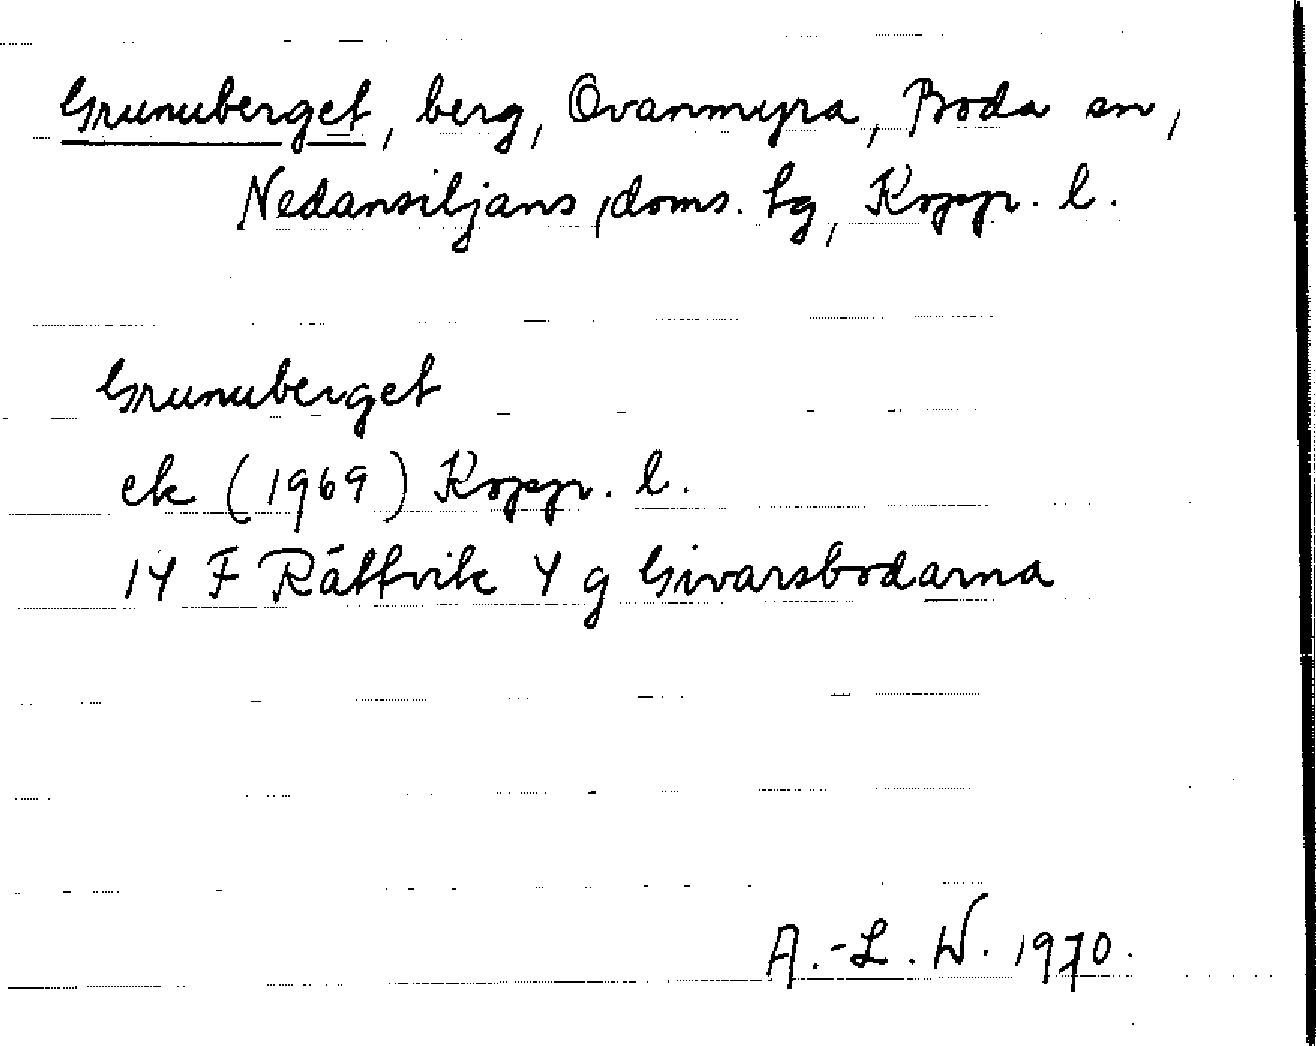 Grunuberget, berg, Ovanmyra, Boda sn,
Nedansiljans doms. tg, Kopp. l.
Grunuberget
ek (1969) Kopp. l.
14 F Rättvik 4 g Givarsbodarna
A.-L. W. 1970.